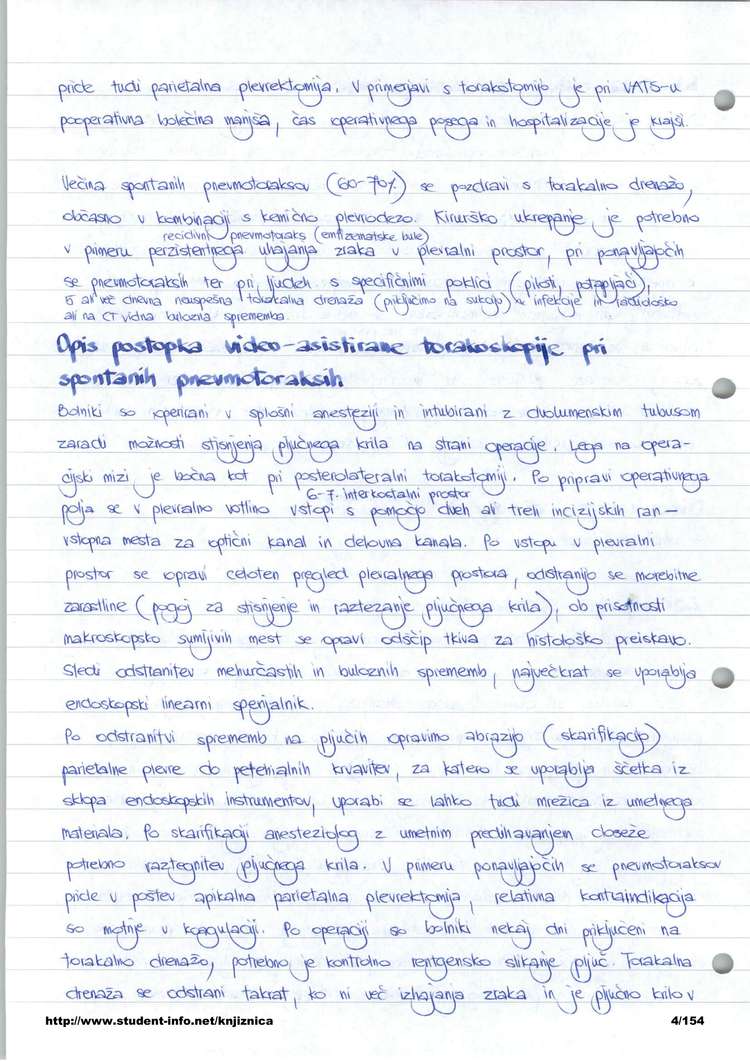 pride tudi parietalna plevrektomija. V primerjavi s torakotomijo je pri VATS-u
pooperativna bolečina manjša, čas operativnega posega in hospitalizacije je krajši.
Večina spontanih pnevmotoraksov (60-70%) se pozdravi s torakalno drenažo,
občasno v kombinaciji s kemično plevrodezo. Kirurško ukrepanje je potrebno
recidivni pnevmotoraks (emfizematske bule)
v primeru perzistentnega uhajanja zraka v plevralni prostor, pri ponavljajočih
se pnevmotoraksih ter pri ljudeh s specifičnimi poklici (piloti, potapljači),
5 ali več dnevna neuspešna torakalna drenaža (priključimo na sukcijo) infekcije in radiološko
ali na CT vidna bulozna sprememba.
Opis postopka video-asistirane torakoskopije pri
spontanih pnevmotoraksih
Bolniki so operirani v splošni anesteziji in intubirani z dvolumenskim tubusom
zaradi možnosti stisnjenja pljučnega krila na strani operacije. Lega na opera-
cijski mizi je bočna kot pri posterolateralni torakotomiji. Po pripravi operativnega
6-7. interkostalni prostor
polja se v plevralno votlino vstopi s pomočjo dveh ali treh incizijskih ran -
vstopna mesta za optični kanal in delovna kanala. Po vstopu v plevralni
prostor se opravi celoten pregled plevralnega prostora, odstranijo se morebitne
zarastline (pogoj za stisnjenje in raztezanje pljučnega krila), ob prisotnosti
makroskopsko sumljivih mest se opravi odščip tkiva za histološko preiskavo.
Sledi odstranitev mehurčastih in buloznih sprememb, največkrat se uporablja
endoskopski linearni spenjalnik.
Po odstranitvi sprememb na pljučih opravimo abrazijo (skarifikacijo)
parietalne plevre do petehialnih krvavitev, za katero se uporablja ščetka iz
sklopa endoskopskih instrumentov, uporabi se lahko tudi mrežica iz umetnega
materiala. Po skarifikaciji anesteziolog z umetnim predihavanjem doseže
potrebno raztegnitev pljučnega krila. V primeru ponavljajočih se pnevmotoraksov
pride v poštev apikalna parietalna plevrektomija, relativna kontraindikacija
so motnje v koagulaciji. Po operaciji so bolniki nekaj dni priključeni na
torakalno drenažo, potrebno je kontrolno rentgensko slikanje pljuč. Torakalna
drenaža se odstrani takrat, ko ni več izhajanja zraka in je pljučno krilo v
http://www.student-info.net/knjiznica 4/154